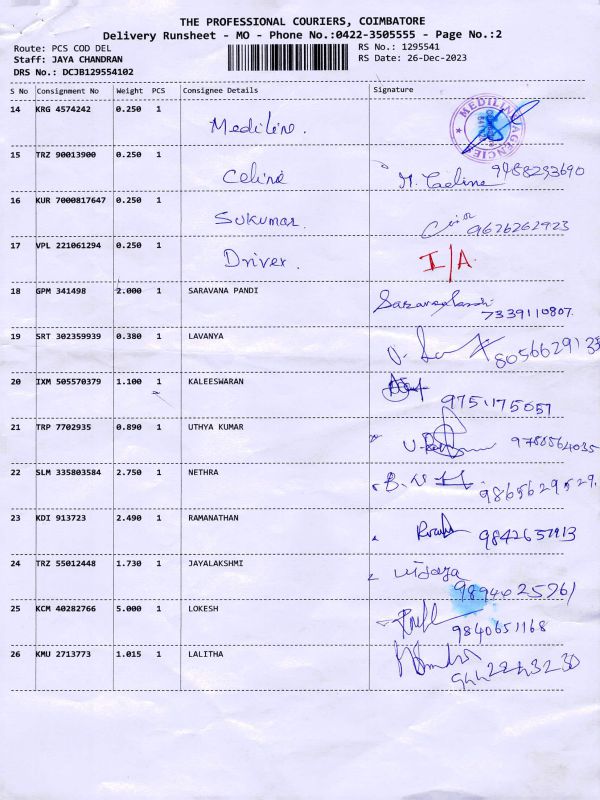 THE PROFESSIONAL COURIERS, COIMBATORE
Delivery Runsheet - MO - Phone No.:0422-3505555 - Page No.:2
Route: PCS COD DEL
RS No.: 1295541
Staff: JAYA CHANDRAN
RS Date: 26-Dec-2023
DRS No.: DCJB129554102
S No Consignment No Weight PCS Consignee Details Signature
14 KRG 4574242 0.250 1 Mediline. MEDILINE AGENCIES
15 TRZ 90013900 0.250 1 Celina M. Celine 9488293690
16 KUR 7000817647 0.250 1 Sukumar. 9626262923
17 VPL 221061294 0.250 1 Driver. I/A
18 GPM 341498 2.000 1 SARAVANA PANDI 7339110807.
19 SRT 302359939 0.380 1 LAVANYA 8056629135
20 IXM 505570379 1.100 1 KALEESWARAN 9751175057
21 TRP 7702935 0.890 1 UTHYA KUMAR 9788564035
22 SLM 335803584 2.750 1 NETHRA 9865629529.
23 KDI 913723 2.490 1 RAMANATHAN 9842657913
24 TRZ 55012448 1.730 1 JAYALAKSHMI Vijaya 9894025961
25 KCM 40282766 5.000 1 LOKESH 9840651168
26 KMU 2713773 1.015 1 LALITHA 9442243230